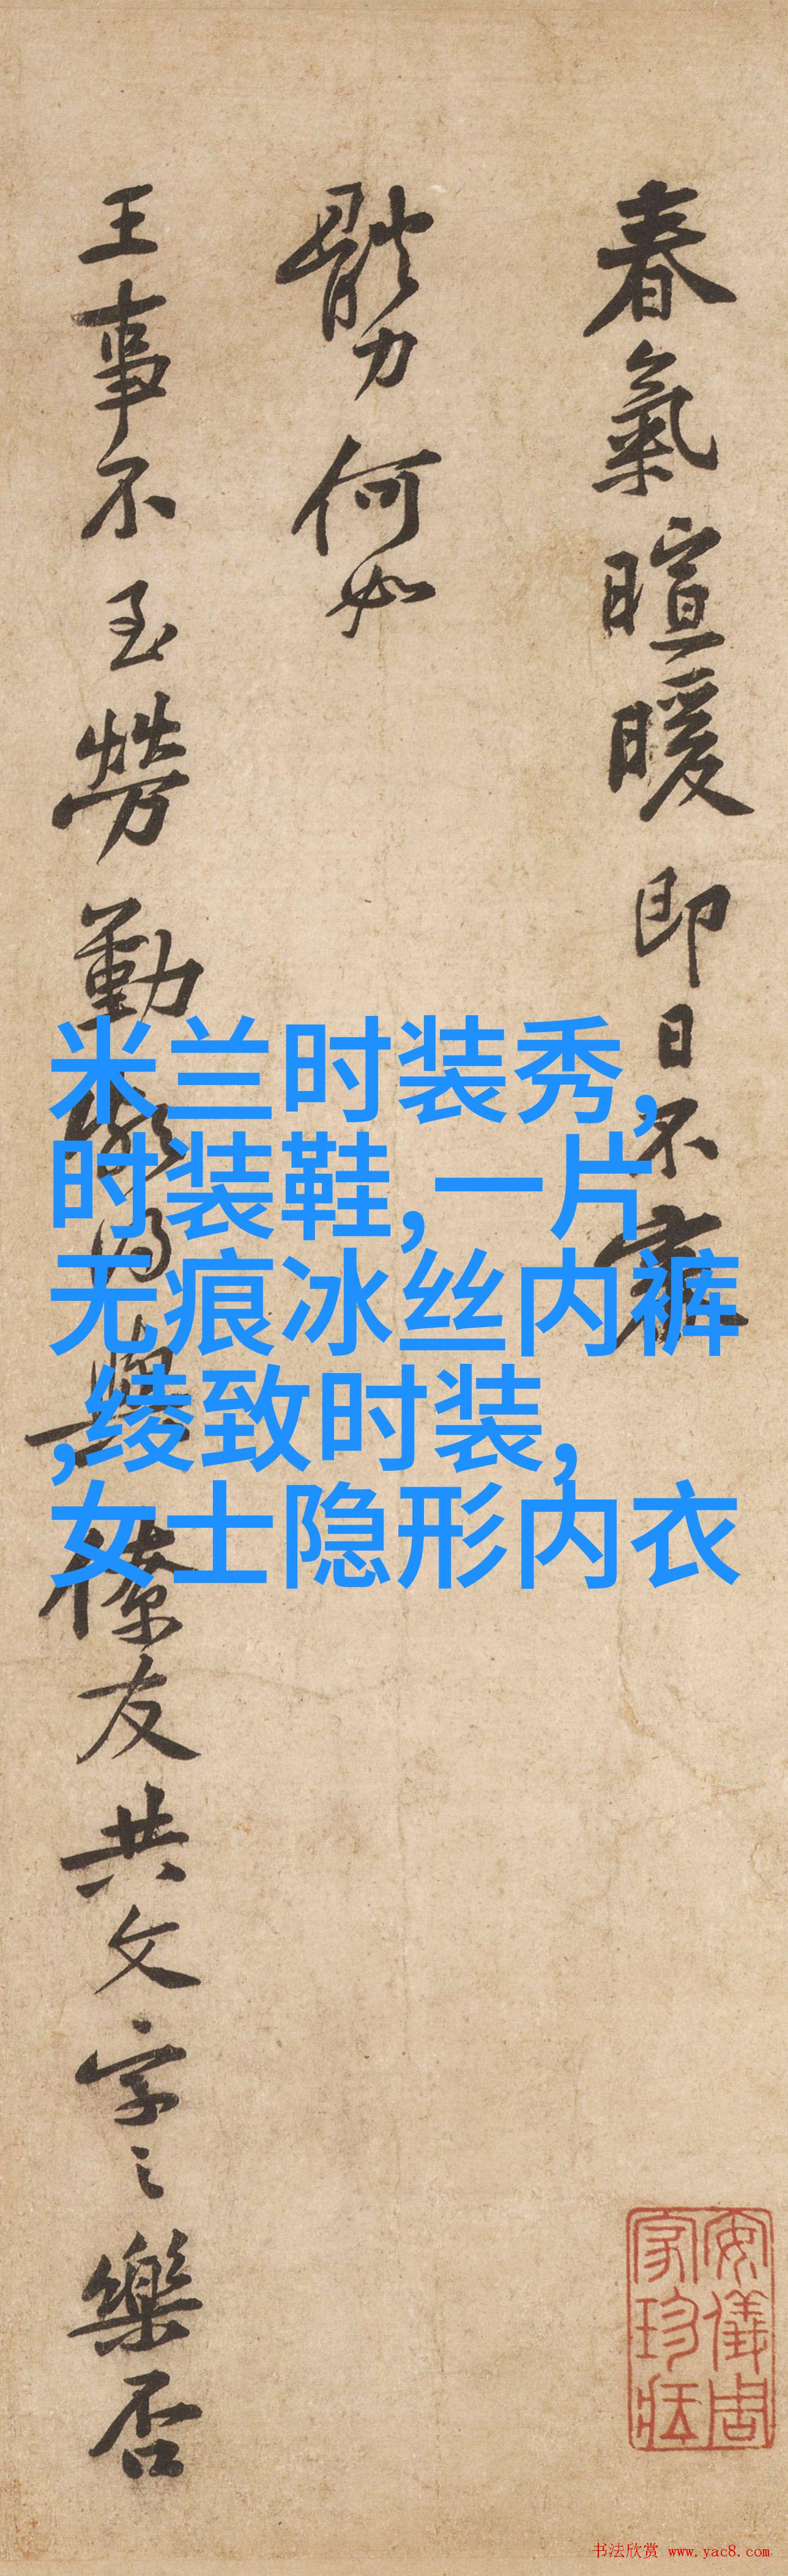 春氣暄暖即日不審
體力何如
王事不至勞勤
得與
僚友共文字之樂否
米兰时装秀,
时装鞋,一片
无痕冰丝内裤
,绫致时装,
女士隐形内衣
安儀周
家珍藏
书法欣赏 www.yac8.com